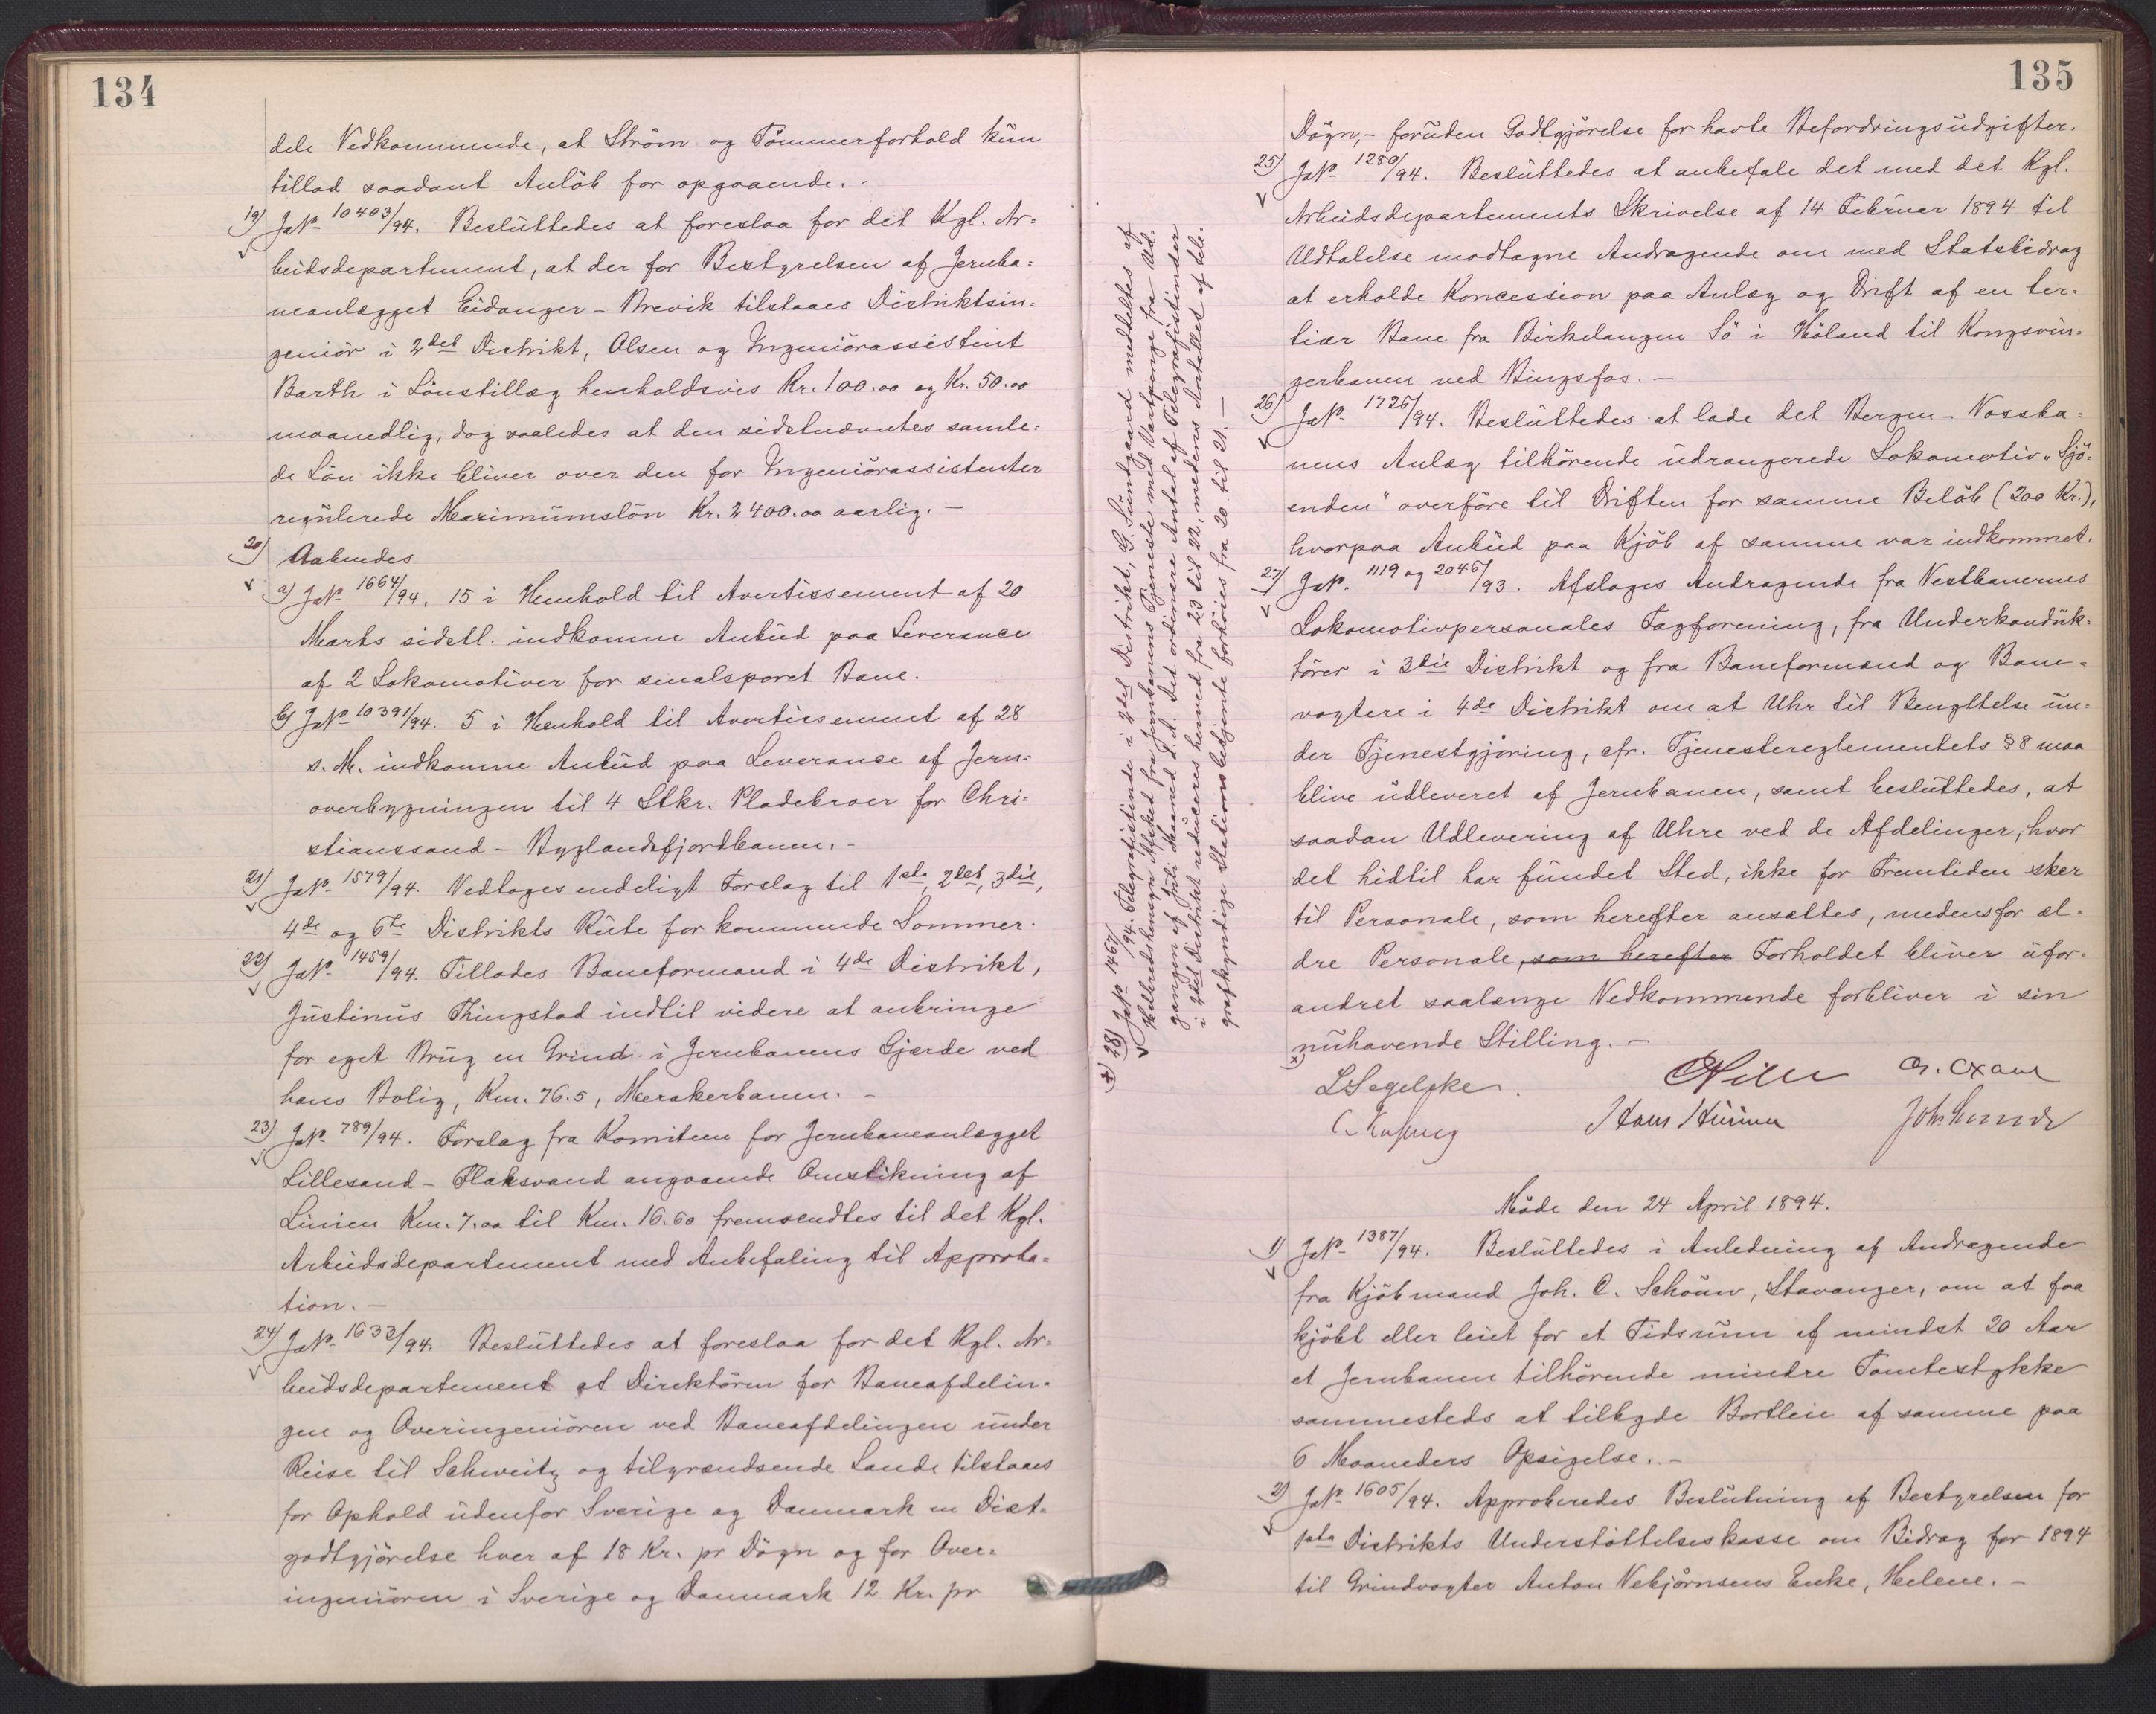 134
dele Vedkommende, at Ström og Tömmerforhold kun
tillod saadant Anlöb for opgaaende. -
19) JNo 10403/94. Besluttedes at foreslaa for det Kgl. Ar=
beidsdepartement, at der for Bestyrelsen af Jernba=
neanlægget Eidanger - Brevik tilstaaes Distriktsin=
geniör i 2det Distrikt, Olsen og Ingeniörassistent
Barth i Lönstillæg henholdsvis Kr. 100.00 og Kr. 50.00
maanedlig, dog saaledes at den sidstnævntes samle=
de Lön ikke bliver over den for Ingeniörassistenter
regulerede Maximumslön Kr. 2400.00 aarlig. -
20) Aabnedes
a) JNo 1664/94. 15 i Henhold til Avertissement af 20
Marts sidstl. indkomne Anbud paa Leverance
af 2 Lokomotiver for smalsporet Bane.
b) JNo 10391/94. 5 i Henhold til Avertissement af 28
s. M. indkomne Anbud paa Leverance af Jern=
overbygningen til 4 Stkr. Pladebroer for Chri=
stianssand - Byglandsfjordbanen. -
21) JNo 1579/94. Vedtoges endeligt Forslag til 1ste, 2det, 3die,
4de og 6te Distrikts Rute for kommende Sommer.
22) JNo 1459/94. Tillodes Baneformand i 4de Distrikt,
Justinus Thingstad indtil videre at anbringe
for eget Brug en Grind i Jernbanens Gjærde ved
hans Bolig, Km. 76.5, Merakerbanen. -
23) JNo 789/94. Forslag fra Komiteen for Jernbaneanlægget
Lillesand - Flaksvand angaaende Omstikning af
Linien Km. 7.00 til Km. 16.60 fremsendtes til det Kgl.
Arbeidsdepartement med Anbefaling til Approba=
tion. -
24) JNo 1633/94. Besluttedes at foreslaa for det Kgl. Ar=
beidsdepartement at Direktören for Baneafdelin=
gen og Overingeniören ved Baneafdelingen under
Reise til Schweitz og tilgrændsende Lande tilstaaes
for Ophold udenfor Sverige og Danmark en Diæt=
godtgjörelse hver af 18 Kr. pr Dögn og for Over=
ingeniören i Sverige og Danmark 12 Kr. pr
135
Dögn, - foruden Godtgjörelse for havte Befordringsudgifter.
25) JNo 1280/94. Besluttedes at anbefale det med det Kgl.
Arbeidsdepartements Skrivelse af 14 Februar 1894 til
Udtalelse modtagne Andragende om med Statsbidrag
at erholde Koncession paa Anlæg og Drift af en ter=
tiær Bane fra Birkelangen Sö i Höland til Kongsvin=
gerbanen ved Bingsfos. -
26) JNo 1726/94. Besluttedes at lade det Bergen - Vossba=
nens Anlæg tilhörende udrangerede Lokomotiv "Sjö=
enden" overföre til Driften for samme Belöb (200 Kr.),
hvorpaa Anbud paa Kjöb af samme var indkommet.
27) JNo. 1119 og 2046/93. Afsloges Andragende fra Vestbanernes
Lokomotivpersonales Fagforening, fra Underkonduk=
törer i 3die Distrikt og fra Baneformænd og Bane=
vogtere i 4de Distrikt om at Uhr til Benyttelse un=
der Tjenestgjöring, cfr. Tjenestereglementets § 8 maa
blive udleveret af Jernbanen, samt besluttedes, at
saadan Udlevering af Uhre ved de Afdelinger, hvor
det hidtil har fundet Sted, ikke for Fremtiden sker
til Personale, som herefter ansættes, medens for æl=
dre Personale, som herefter Forholdet bliver ufor=
andret saalænge Vedkommende forbliver i sin
nuhavende Stilling. -
x)
x) 28) JNo 1467/94. Telegrafistinde i 2det Distrikt, G. Sundgaard meddeltes af
Helbredshensyn Afsked fra Jernbanens Tjeneste med Vartpenge fra Ud=
gangen af Juli Maaned d. A. Det ordinære Antal af Telegrafistinder
i 2det Distrikt reduceres herved fra 23 til 22, medens Antallet af tele=
grafkyndige Stationsbetjente forhöies fra 20 til 21. -
Hans
Joh.
Möde den 24 April 1894.
1) JNo 1387/94. Besluttedes i Anledning af Andragende
fra Kjöbmand Joh. C. Schouw, Stavanger, om at faa
kjöbt eller leiet for et Tidsrum af mindst 20 Aar
et Jernbanen tilhörende mindre Tomtestykke
sammesteds at tilbyde Bortleie af samme paa
6 Maaneders Opsigelse. -
2) JNo 1605/94. Approberedes Beslutning af Bestyrelsen for
1ste Distrikts Understöttelseskasse om Bidrag for 1894
til Grindvogter Anton Vebjörnsens Enke, Helene. -